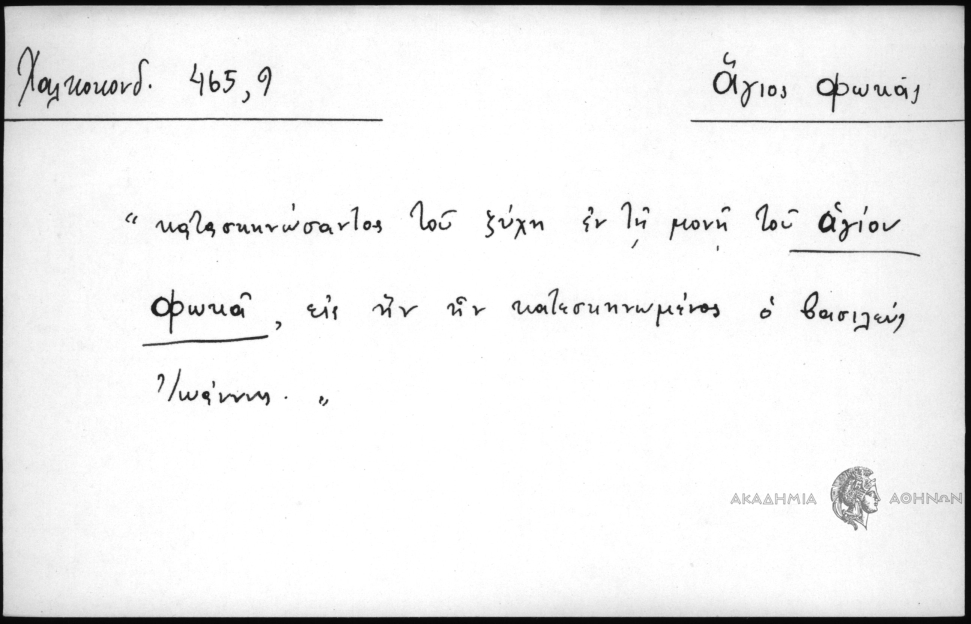 Χαλκοκονδ. 465,9
Ἅγιος Φωκᾶς
“ κατασκηνώσαντος τοῦ ξύχη ἐν τῇ μονῇ τοῦ ἁγίου
Φωκᾶ, εἰς ἣν ἦν κατεσκηνωμένος ὁ βασιλεύς
Ἰωάννης. „
ΑΚΑΔΗΜΙΑ ΑΘΗΝΩΝ